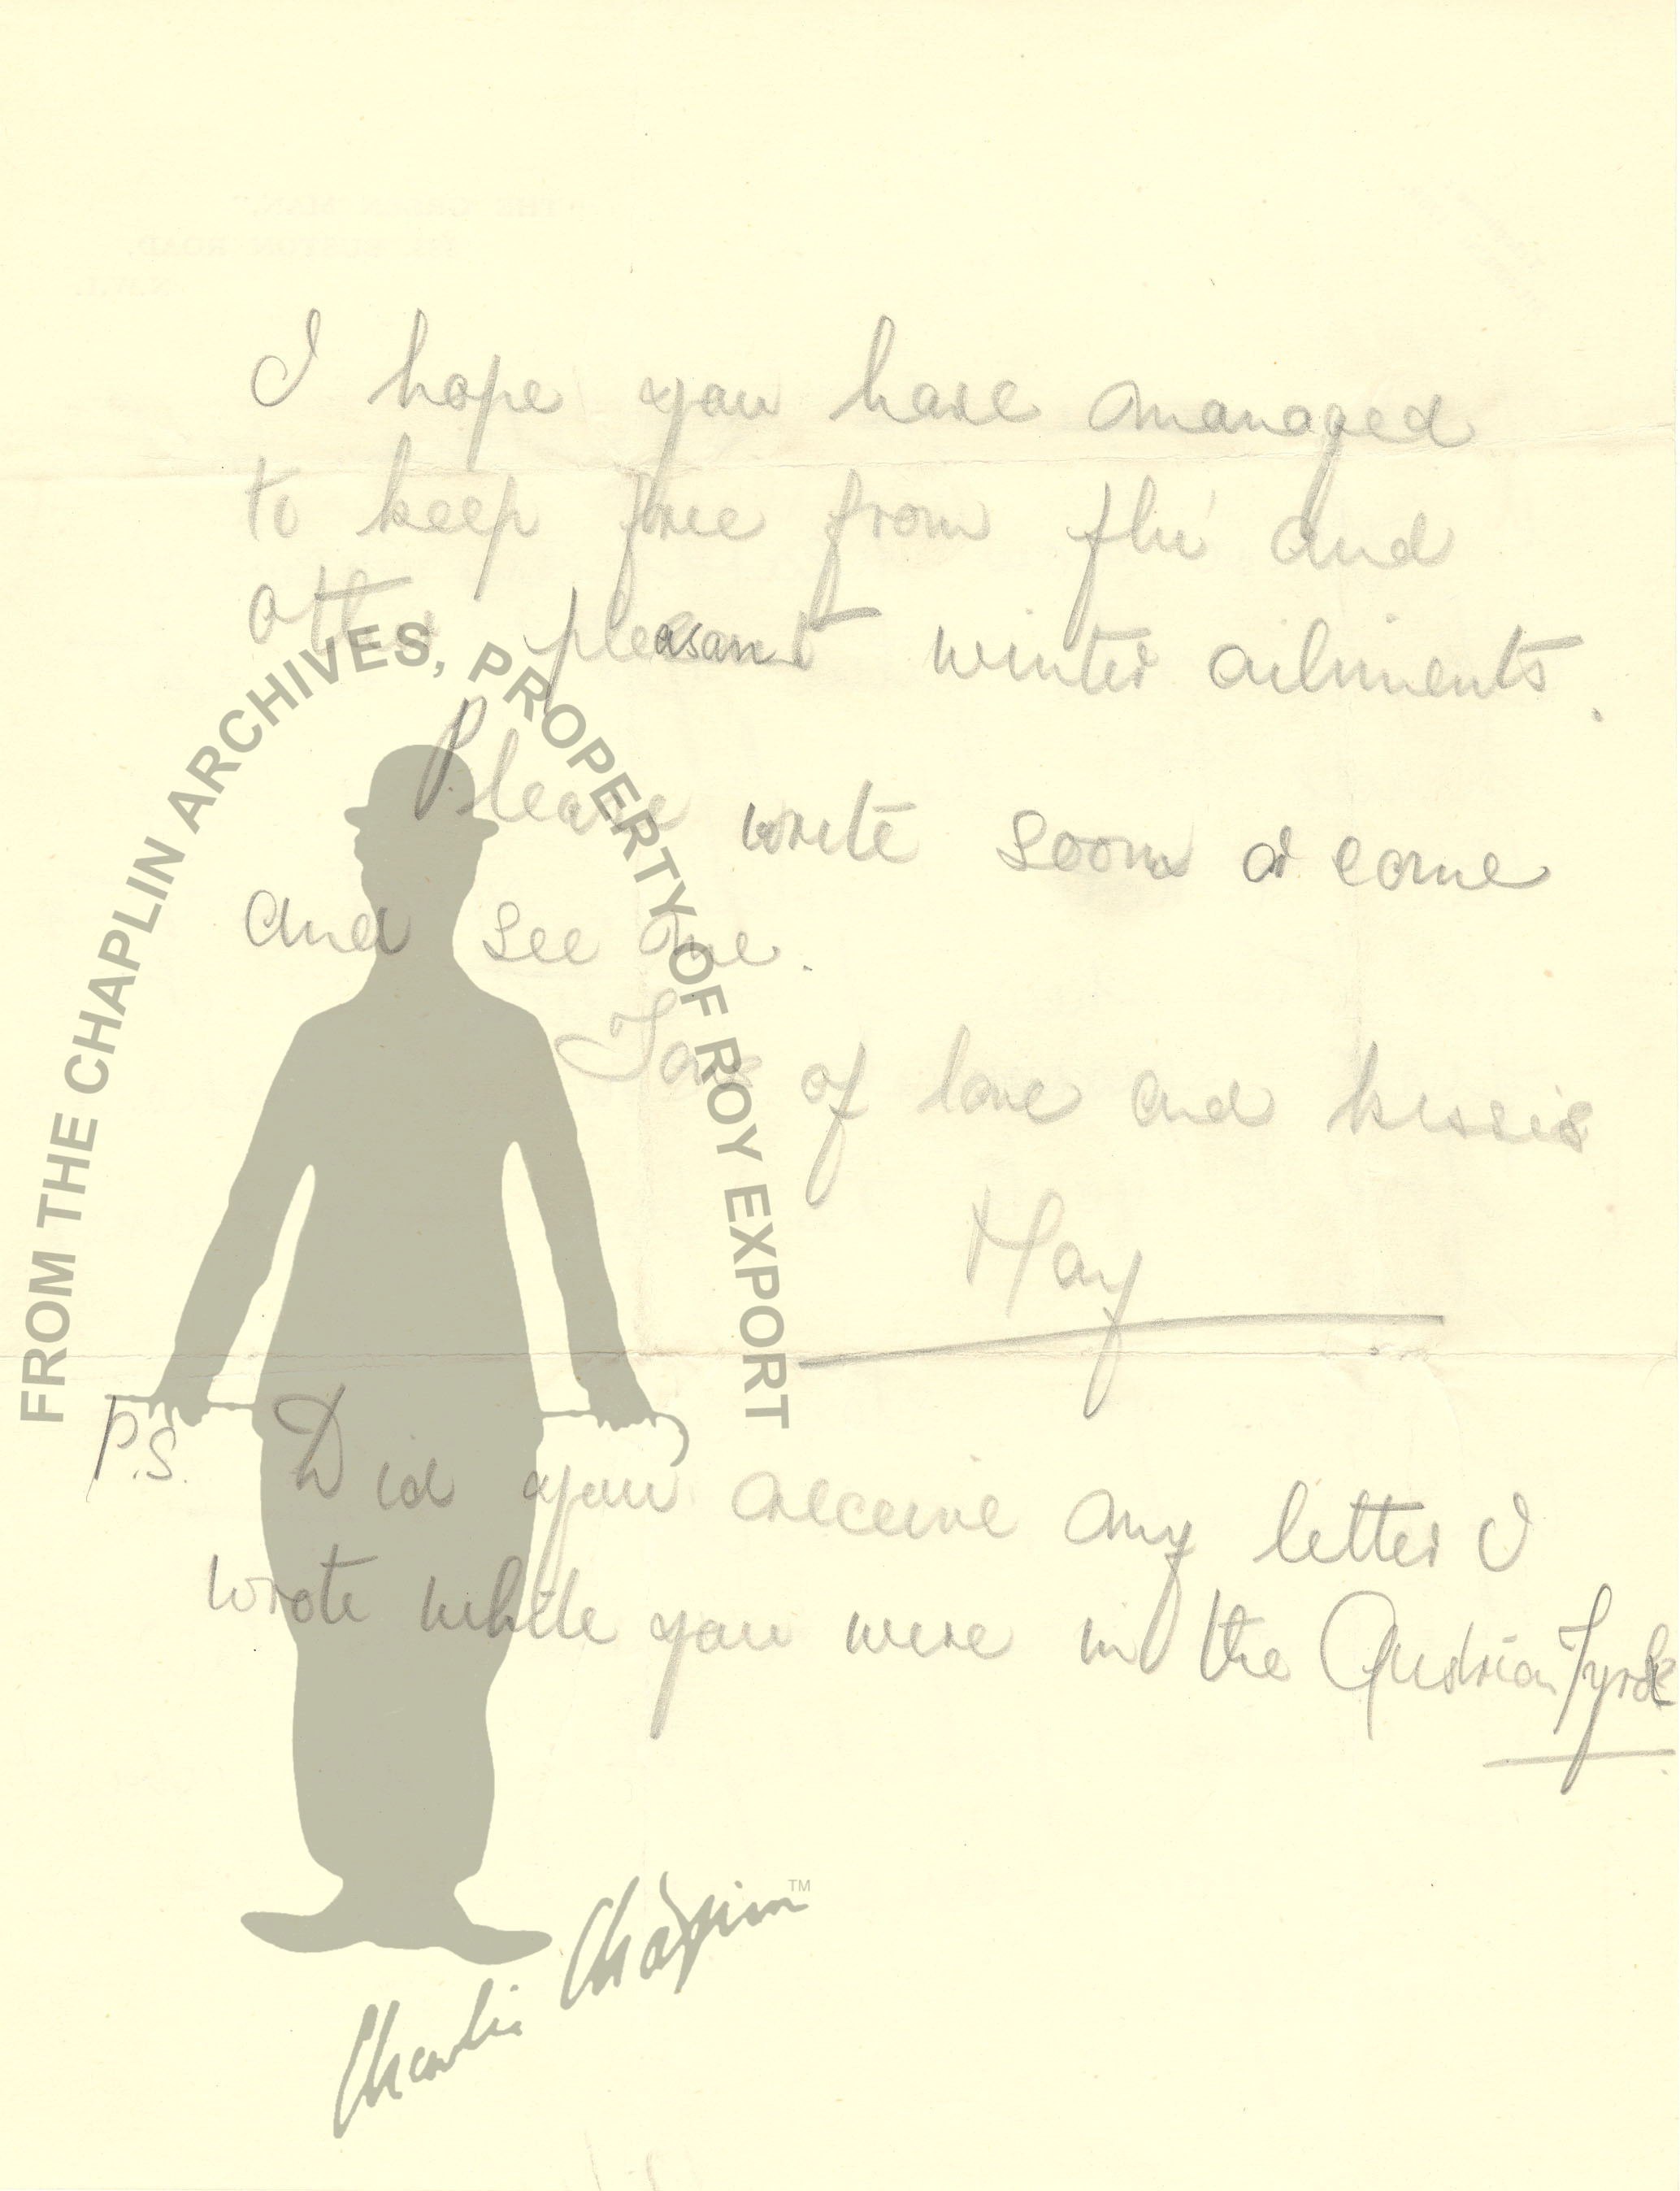 "THE GREEN MAN,"
EUSTON ROAD,
N.W.1.
I hope you have managed
to keep free from flu' and
other pleasant winter ailments.
Please write soon or come
and see me.
Tons of love and kisses
May
P.S. Did you receive any letter I
wrote while you were in the Austrian Tyrol
FROM THE CHAPLIN ARCHIVES, PROPERTY OF ROY EXPORT
Charlie Chaplin™